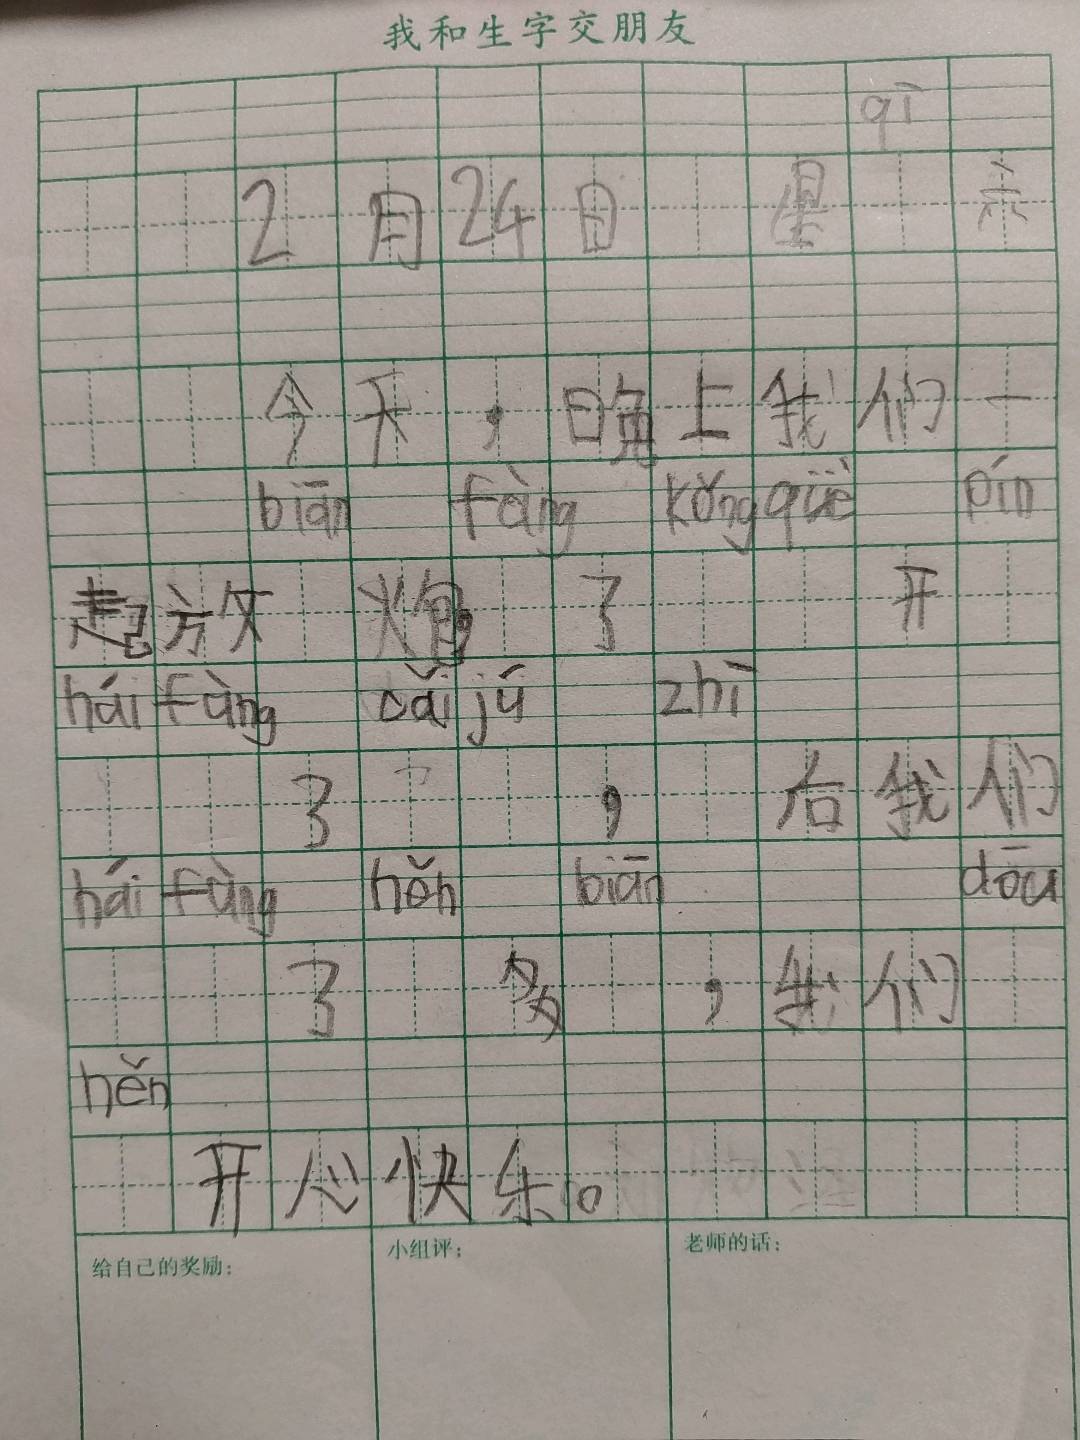 我和生字交朋友
qī
2月24日 星 六
今天，晚上我们一
biān fàng kǒng què pín
起放 炮，了 开
hái fàng cǎi jú zhī
了 ， 后我们
hái fàng hěn biān dōu
了 多 ，我们
hěn
开心快乐。
给自己的奖励： 小组评： 老师的话：